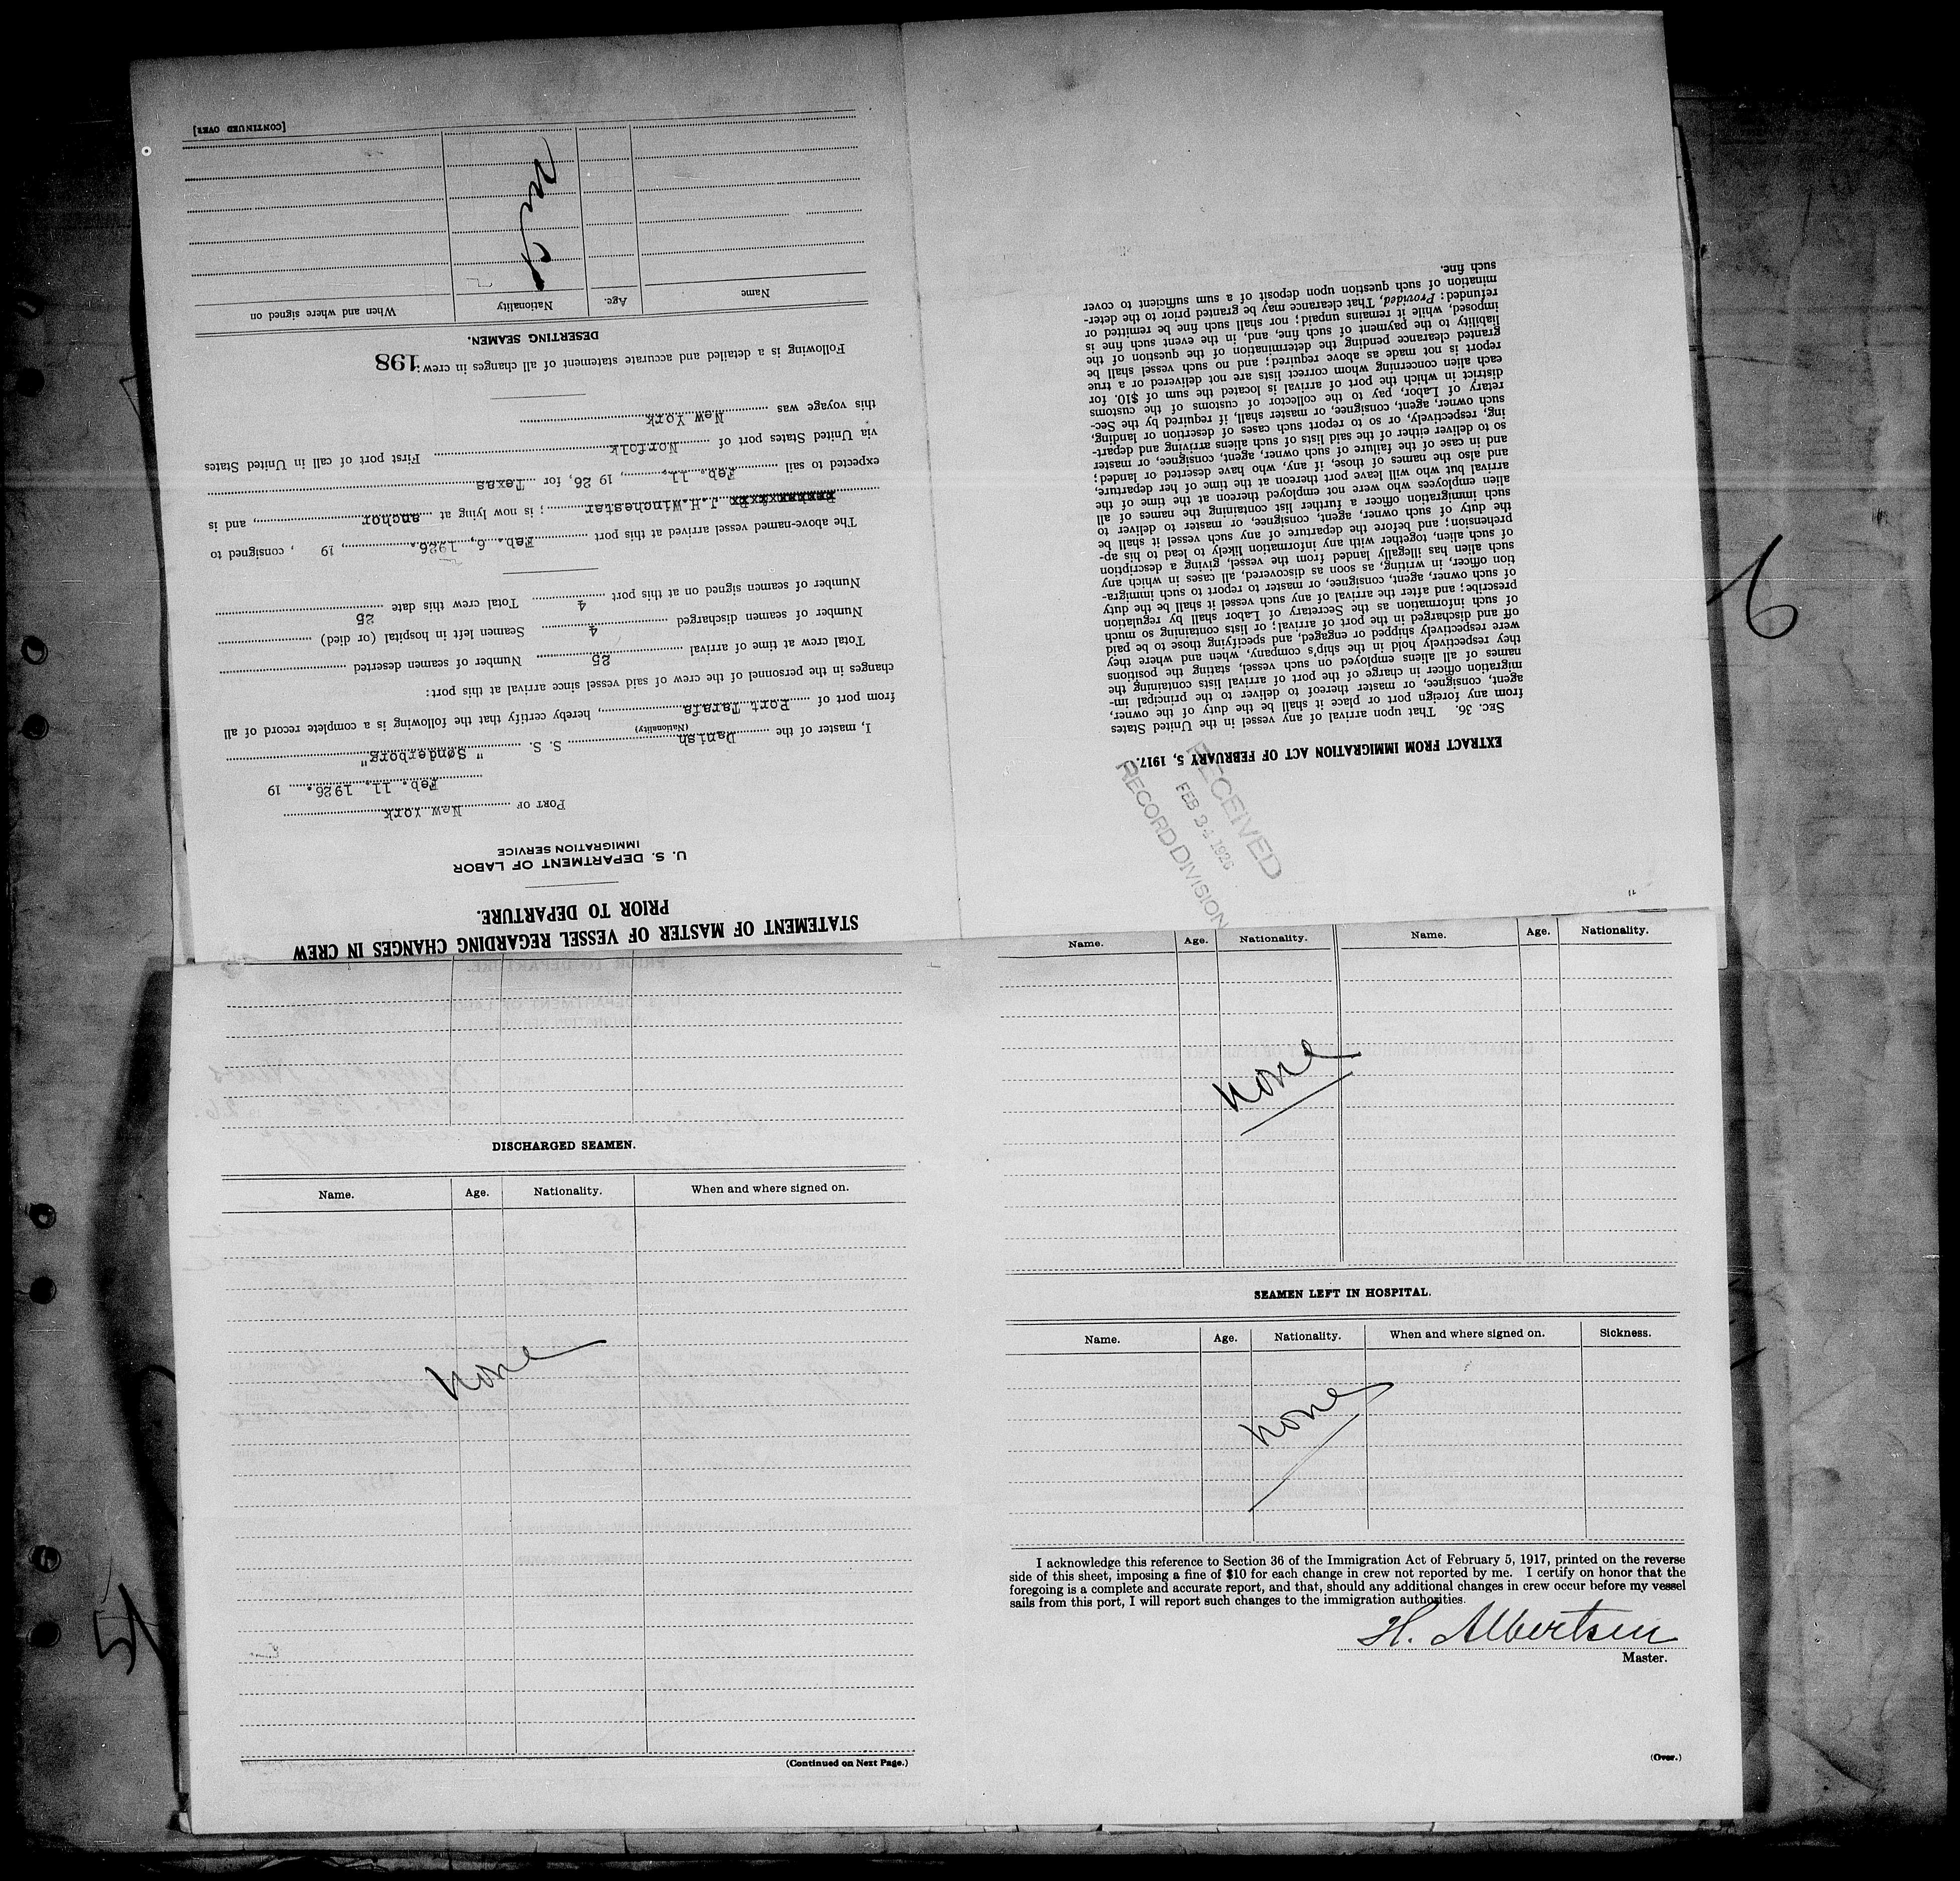 STATEMENT OF MASTER OF VESSEL REGARDING CHANGES IN CREW
PRIOR TO DEPARTURE.
U. S. DEPARTMENT OF LABOR
IMMIGRATION SERVICE
PORT OF New York
Feb. 11, 1926. 19
I, master of the Danish S. S. "Sønderborg"
(Nationality)
from port of Port Tarafa, hereby certify that the following is a complete record of all
changes in the personnel of the crew of said vessel since arrival at this port:
Total crew at time of arrival 25 Number of seamen deserted
Number of seamen discharged 4 Seamen left in hospital (or died)
Number of seamen signed on at this port 4 Total crew this date 25
The above-named vessel arrived at this port Feb. 6, 1926., 19 , consigned to
J.H.Winchester; is now lying at anchor, and is
expected to sail Feb. 11, 19 26, for Texas
via United States port of Norfolk First port of call in United States
this voyage was New York
Following is a detailed and accurate statement of all changes in crew: 198
DESERTING SEAMEN.
Name Age. Nationality When and where signed on
[CONTINUED OVER]
EXTRACT FROM IMMIGRATION ACT OF FEBRUARY 5, 1917.
SEC. 36. That upon arrival of any vessel in the United States
from any foreign port or place it shall be the duty of the owner,
agent, consignee, or master thereof to deliver to the principal im-
migration officer in charge of the port of arrival lists containing the
names of all aliens employed on such vessel, stating the positions
they respectively hold in the ship's company, when and where they
were respectively shipped or engaged, and specifying those to be paid
off and discharged in the port of arrival; or lists containing so much
of such information as the Secretary of Labor shall by regulation
prescribe; and after the arrival of any such vessel it shall be the duty
of such owner, agent, consignee, or master to report to such immigra-
tion officer, in writing, as soon as discovered, all cases in which any
such alien has illegally landed from the vessel, giving a description
of such alien, together with any information likely to lead to his ap-
prehension; and before the departure of any such vessel it shall be
the duty of such owner, agent, consignee, or master to deliver to
such immigration officer a further list containing the names of all
alien employees who were not employed thereon at the time of the
arrival but who will leave port thereon at the time of her departure,
and also the names of those, if any, who have deserted or landed;
and in case of the failure of such owner, agent, consignee, or master
so to deliver either of the said lists of such aliens arriving and depart-
ing, respectively, or so to report such cases of desertion or landing,
such owner, agent, consignee, or master shall, if required by the Sec-
retary of Labor, pay to the collector of customs of the customs
district in which the port of arrival is located the sum of $10. for
each alien concerning whom correct lists are not delivered or a true
report is not made as above required; and no such vessel shall be
granted clearance pending the determination of the question of the
liability to the payment of such fine, and, in the event such fine is
imposed, while it remains unpaid; nor shall such fine be remitted or
refunded: Provided, That clearance may be granted prior to the deter-
mination of such question upon deposit of a sum sufficient to cover
such fine.
RECEIVED
FEB 24 1926
RECORD DIVISION
DISCHARGED SEAMEN.
Name. Age. Nationality. When and where signed on.
None
(Continued on Next Page.)
Name. Age. Nationality. Name. Age. Nationality.
None
SEAMEN LEFT IN HOSPITAL.
Name. Age. Nationality. When and where signed on. Sickness.
None
I acknowledge this reference to Section 36 of the Immigration Act of February 5, 1917, printed on the reverse
side of this sheet, imposing a fine of $10 for each change in crew not reported by me. I certify on honor that the
foregoing is a complete and accurate report, and that, should any additional changes in crew occur before my vessel
sails from this port, I will report such changes to the immigration authorities.
H. Albertsen
Master.
(Over.)
5
6